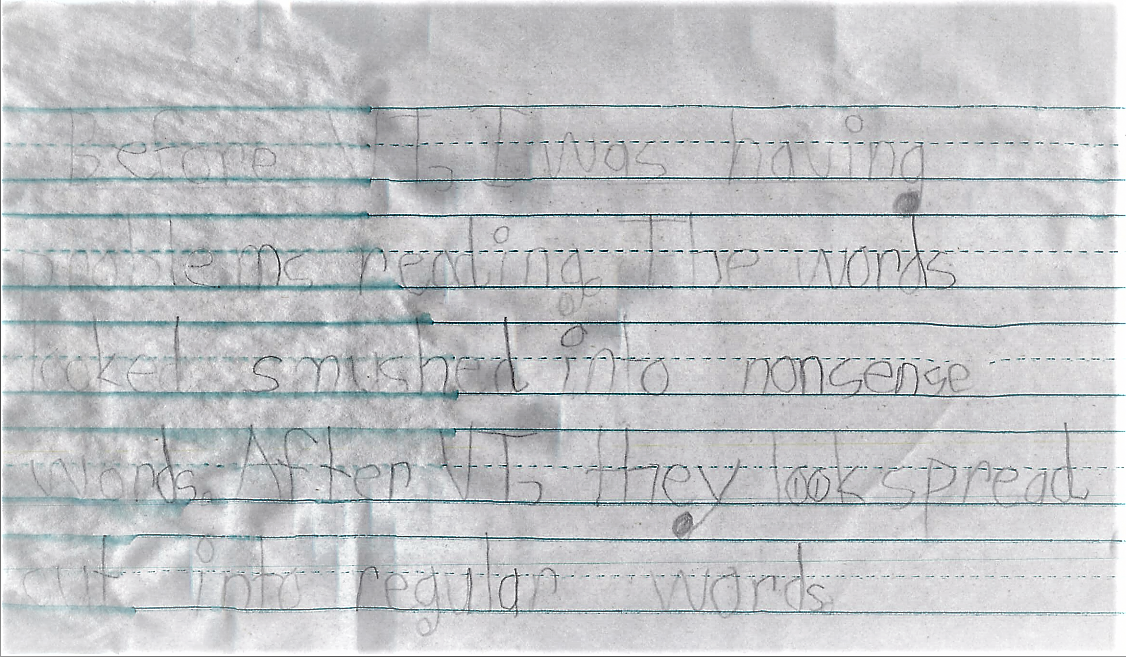 Before VT, I was having
problems reading. The words
looked smushed into nonsense
words. After VT, they look spread
out into regular words.